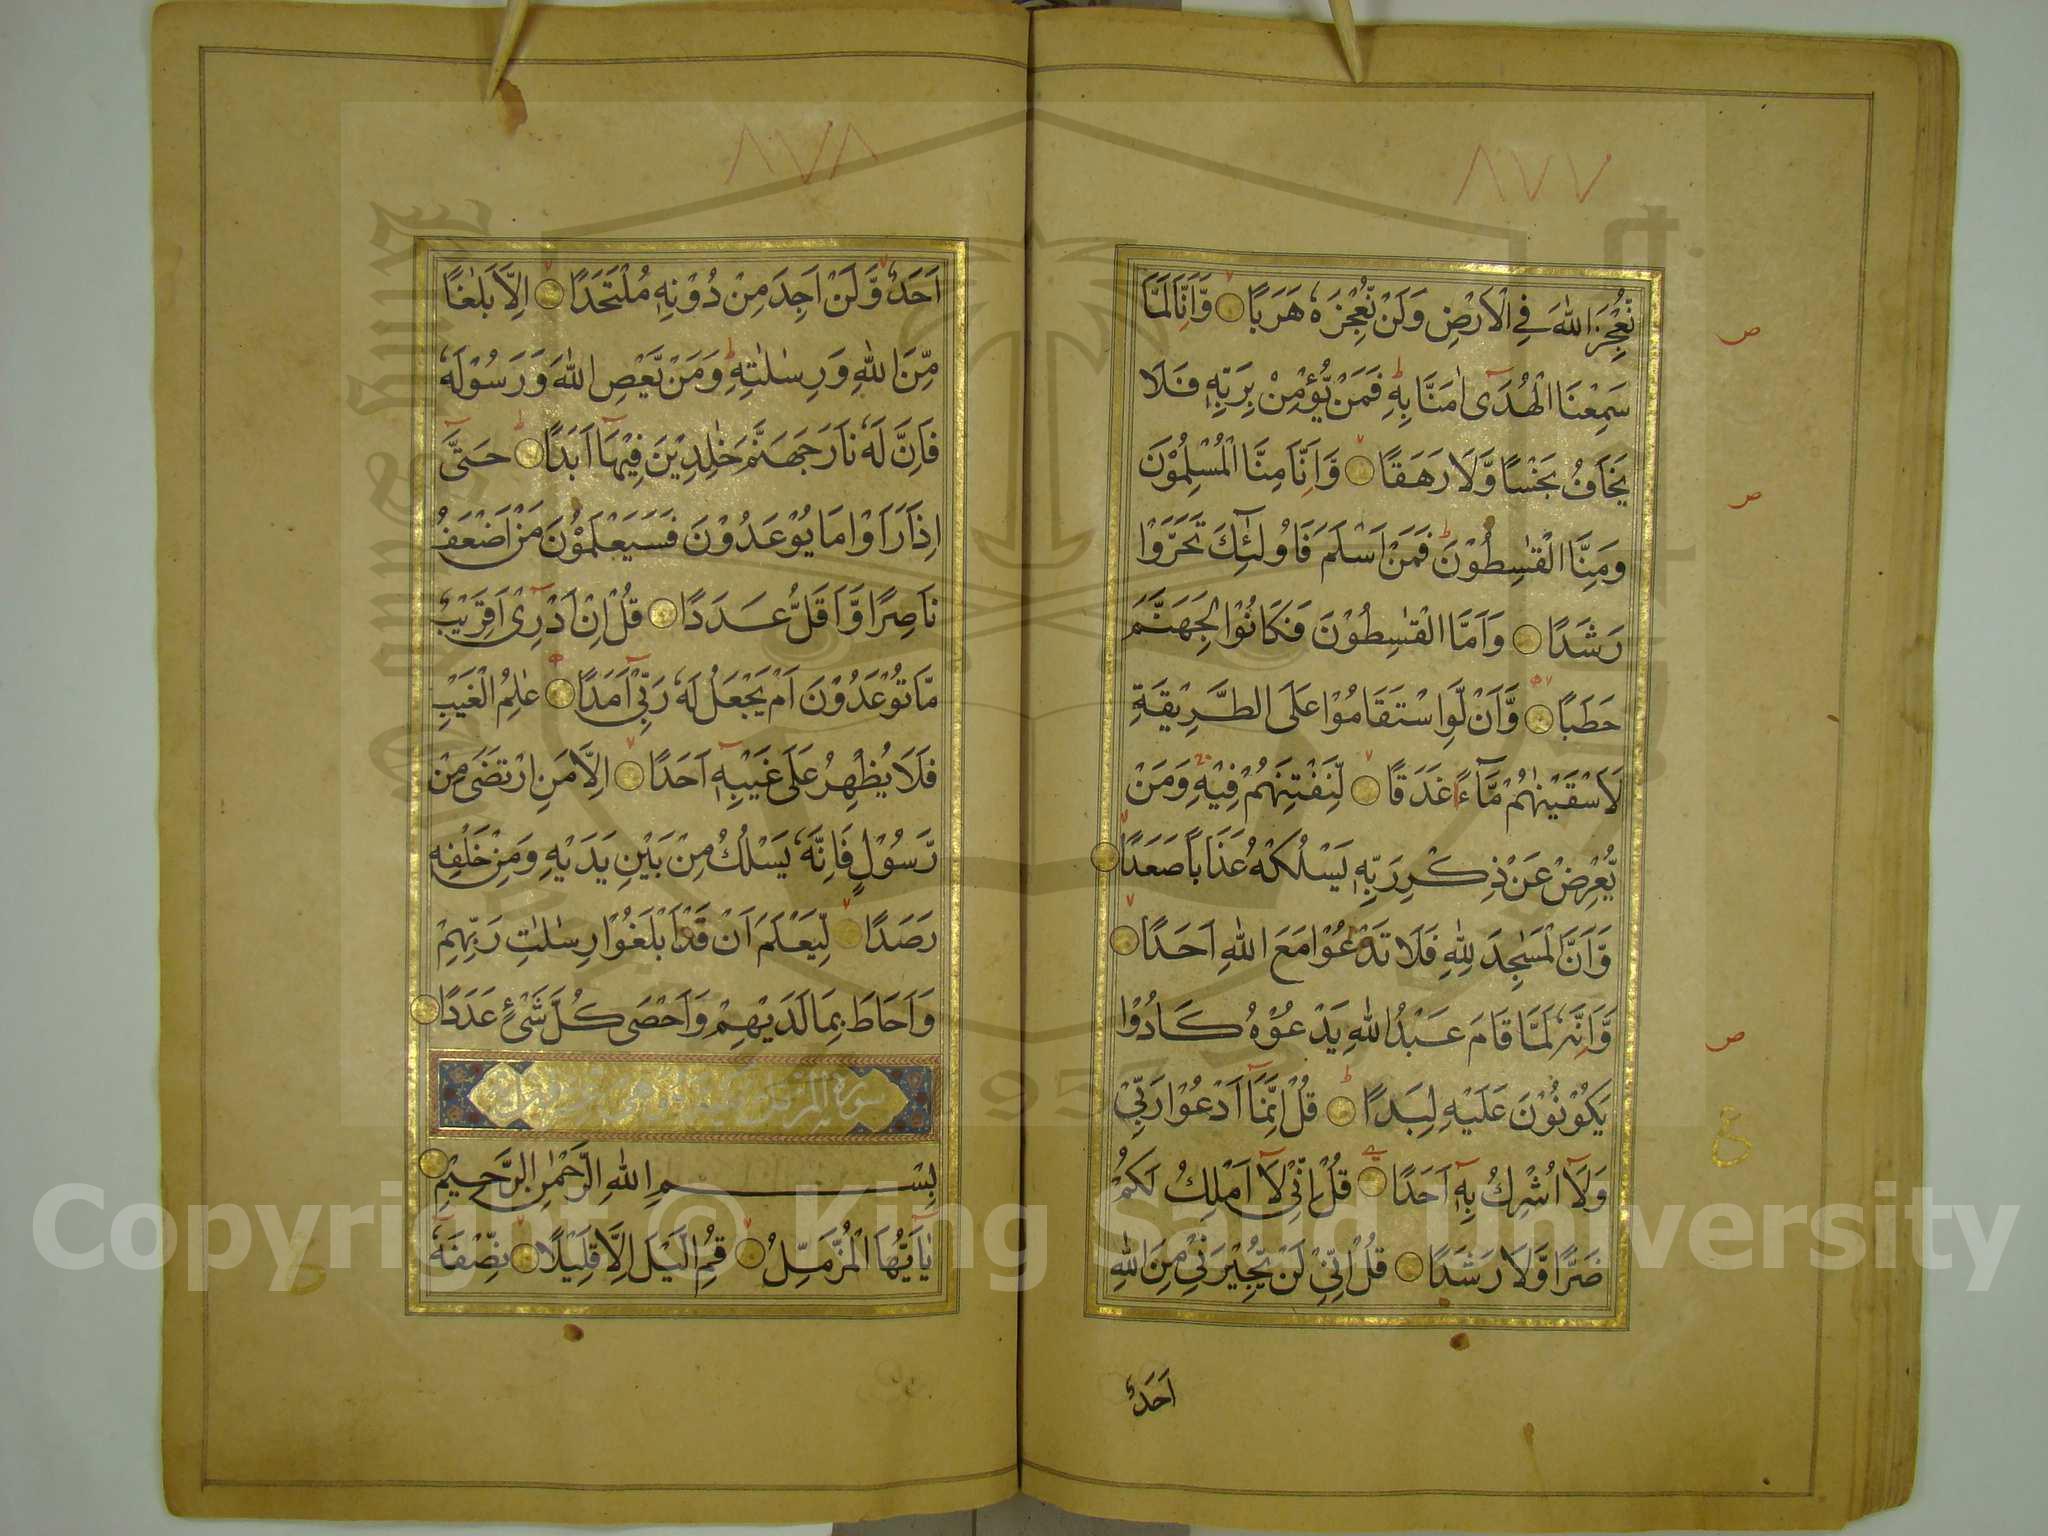 ٨٧٧
نُّعْجِزَ اللّٰهَ فِي الْاَرْضِ وَلَنْ نُّعْجِزَهٗ هَرَبًا وَّاَنَّا لَمَّا
سَمِعْنَا الْهُدٰٓى اٰمَنَّا بِهٖ فَمَنْ يُّؤْمِنْ بِرَبِّهٖ فَلَا
يَخَافُ بَخْسًا وَّلَا رَهَقًا وَّاَنَّا مِنَّا الْمُسْلِمُوْنَ
وَمِنَّا الْقٰسِطُوْنَ فَمَنْ اَسْلَمَ فَاُولٰٓئِكَ تَحَرَّوْا
رَشَدًا وَاَمَّا الْقٰسِطُوْنَ فَكَانُوْا لِجَهَنَّمَ
حَطَبًا وَّاَنْ لَّوِ اسْتَقَامُوْا عَلَى الطَّرِيْقَةِ
لَاَسْقَيْنٰهُمْ مَّآءً غَدَقًا لِّنَفْتِنَهُمْ فِيْهِ وَمَنْ
يُّعْرِضْ عَنْ ذِكْرِ رَبِّهٖ يَسْلُكْهُ عَذَابًا صَعَدًا
وَّاَنَّ الْمَسٰجِدَ لِلّٰهِ فَلَا تَدْعُوْا مَعَ اللّٰهِ اَحَدًا
وَّاَنَّهٗ لَمَّا قَامَ عَبْدُ اللّٰهِ يَدْعُوْهُ كَادُوْا
يَكُوْنُوْنَ عَلَيْهِ لِبَدًا قُلْ اِنَّمَآ اَدْعُوْا رَبِّيْ
وَلَآ اُشْرِكُ بِهٖٓ اَحَدًا قُلْ اِنِّيْ لَآ اَمْلِكُ لَكُمْ
ضَرًّا وَّلَا رَشَدًا قُلْ اِنِّيْ لَنْ يُّجِيْرَنِيْ مِنَ اللّٰهِ
اَحَدٌ
ص
ص
ص
ع
٨٧٨
اَحَدٌ وَّلَنْ اَجِدَ مِنْ دُوْنِهٖ مُلْتَحَدًا اِلَّا بَلٰغًا
مِّنَ اللّٰهِ وَرِسٰلٰتِهٖ وَمَنْ يَّعْصِ اللّٰهَ وَرَسُوْلَهٗ
فَاِنَّ لَهٗ نَارَ جَهَنَّمَ خٰلِدِيْنَ فِيْهَآ اَبَدًا حَتّٰٓى
اِذَا رَاَوْا مَا يُوْعَدُوْنَ فَسَيَعْلَمُوْنَ مَنْ اَضْعَفُ
نَاصِرًا وَّاَقَلُّ عَدَدًا قُلْ اِنْ اَدْرِيْٓ اَقَرِيْبٌ
مَّا تُوْعَدُوْنَ اَمْ يَجْعَلُ لَهٗ رَبِّيْٓ اَمَدًا عٰلِمُ الْغَيْبِ
فَلَا يُظْهِرُ عَلٰى غَيْبِهٖٓ اَحَدًا اِلَّا مَنِ ارْتَضٰى مِنْ
رَّسُوْلٍ فَاِنَّهٗ يَسْلُكُ مِنْ بَيْنِ يَدَيْهِ وَمِنْ خَلْفِهٖ
رَصَدًا لِّيَعْلَمَ اَنْ قَدْ اَبْلَغُوْا رِسٰلٰتِ رَبِّهِمْ
وَاَحَاطَ بِمَا لَدَيْهِمْ وَاَحْصٰى كُلَّ شَيْءٍ عَدَدًا
سورة المزمل
بِسْمِ اللّٰهِ الرَّحْمٰنِ الرَّحِيْمِ
يٰٓاَيُّهَا الْمُزَّمِّلُ قُمِ الَّيْلَ اِلَّا قَلِيْلًا نِّصْفَهٗٓ
Copyright © King Saud University